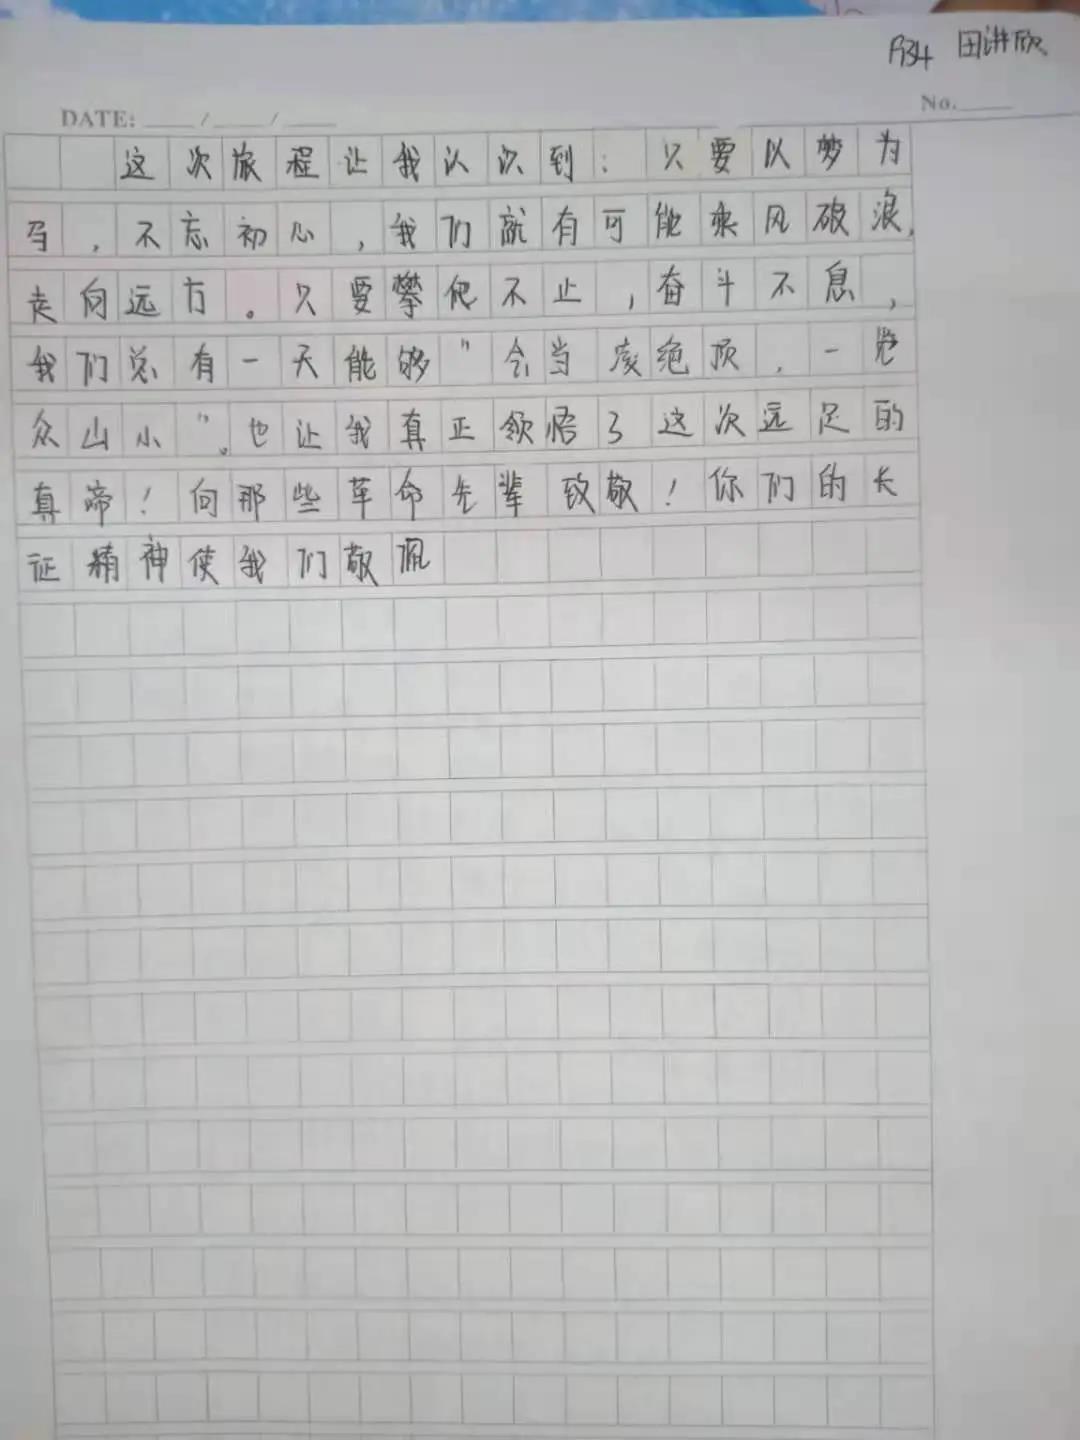 934 田洪欣
DATE: ___/___/___ No.____
这次旅程让我认识到：只要以梦为
马，不忘初心，我们就有可能乘风破浪，
走向远方。只要攀爬不止，奋斗不息，
我们总有一天能够"会当凌绝顶，一览
众山小"。也让我真正领悟了这次远足的
真帝！向那些革命先辈致敬！你们的长
征精神使我们敬佩